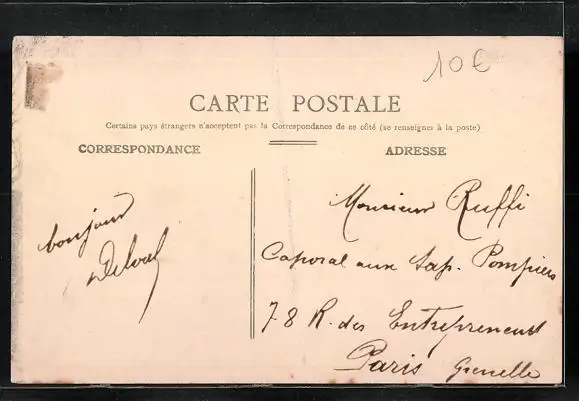 10€
CARTE POSTALE
Certains pays étrangers n'acceptent pas la Correspondance de ce côté (se renseigner à la poste)
CORRESPONDANCE
ADRESSE
bonjour
Monsieur Ruffi
Caporal aux Sap. Pompiers
78 R. des Entrepreneurs
Paris Grenelle